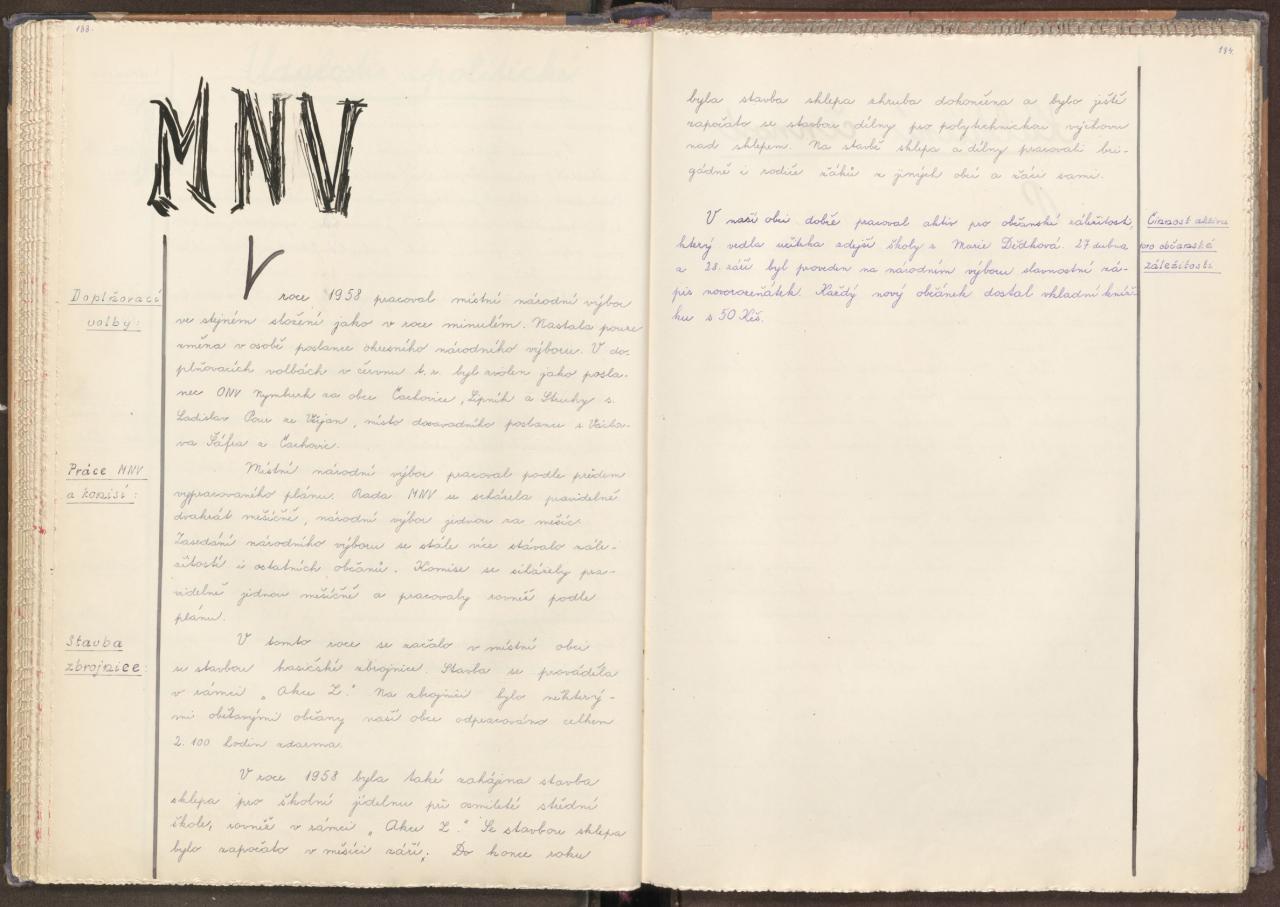 188.
MNV
Doplňovací
volby:
V roce 1958 pracoval místní národní výbor
ve stejném složení jako v roce minulém. Nastala pouze
změna v osobě poslance okresního národního výboru. V do-
plňovacích volbách v červnu t. r. byl zvolen jako posla-
nec ONV Nymburk za obce Čachovice, Lipník a Struhy s.
Ladislav Pour ze Vlkjan, místo dosavadního poslance s Václa-
va Šáfra z Čachovic.
Práce MNV
a komisí:
Místní národní výbor pracoval podle předem
vypracovaného plánu. Rada MNV se scházela pravidelně
dvakrát měsíčně, národní výbor jednou za měsíc.
Zasedání národního výboru se stále více stávalo zále-
žitostí i ostatních občanů. Komise se scházely pra-
videlně jednou měsíčně a pracovaly rovněž podle
plánu.
Stavba
zbrojnice:
V tomto roce se začalo v místní obci
se stavbou hasičské zbrojnice. Stavba se prováděla
v rámci „Akce Z." Na zbrojnici bylo některý-
mi obětavými občany naší obce odpracováno celkem
2.100 hodin zdarma.
V roce 1958 byla také zahájena stavba
sklepa pro školní jídelnu při osmileté střední
škole, rovněž v rámci „Akce Z." Se stavbou sklepa
bylo započato v měsíci září. Do konce roku
184.
byla stavba sklepa zhruba dokončena a bylo ještě
započato se stavbou dílny pro polytechnickou výchovu
nad sklepem. Na stavbě sklepa a dílny pracovali bri-
gádně i rodiče žáků z jiných obcí a žáci sami.
Činnost aktivu
pro občanské
záležitosti.
V naší obci dobře pracoval aktiv pro občanské záležitosti,
který vedla učitelka zdejší školy s Marie Dědková. 27 dubna
a 28. září byl proveden na národním výboru slavnostní zá-
pis novorozeňátek. Každý nový občánek dostal vkladní kníž-
ku s 50 Kčs.